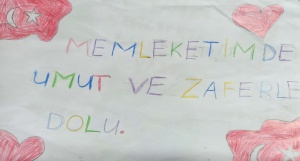 MEMLEKETİMDE
UMUT VE ZAFERLE
DOLU.